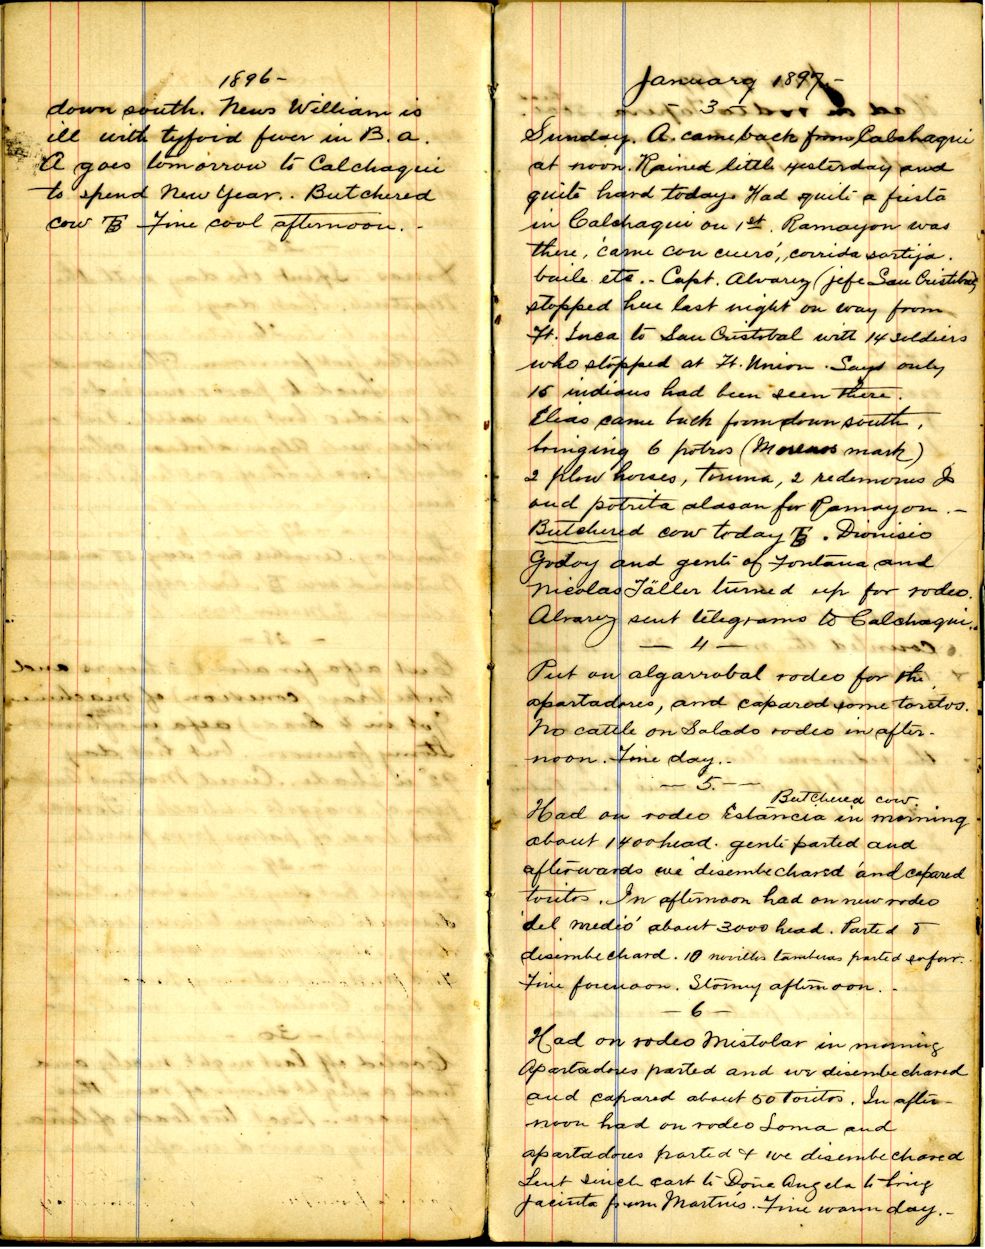 1896-
down south. News William is
ill with tyfoid fever in B. a.
A goes tomorrow to Calchaqui
to spend New Year. Butchered
cow TB Fine cool afternoon. -
January 1897-
3
Sunday. A. came back from Calchaqui
at noon. Rained little yesterday and
quite hard today. Had quite a fiesta
in Calchaqui on 1st. Ramayon was
there, 'carne con cuero', corrida sortija.
baile etc. - Capt. Alvarez (jefe San Cristobal)
stopped here last night on way from
Ft. Inca to San Cristobal with 14 soldiers
who stopped at Ft. Union. Says only
15 indians had been seen there.
Elias came back from down south,
bringing 6 potros (Morenos mark)
2 plow horses, toruna, 2 redomones
and potrita alasan for Ramayon. -
Butchered cow today TB. Dionisio
Godoy and gente of Fontana and
Nicolas Täller turned up for rodeo.
Alvarez sent telegrams to Calchaqui.
- 4 -
Put on algarrobal rodeo for the
apartadores, and capared some toritos.
No cattle on Salado rodeo in after-
noon. Fine day. -
- 5. -
Butchered cow.
Had on rodeo Estancia in morning
about 1400 head. gente parted and
afterwards we 'disembechared' and capared
toritos. In afternoon had on new rodeo
'del medio' about 3000 head. Parted &
disembechard. 10 novillos tamberas parted so far.
Fine forenoon. Stormy afternoon. -
- 6 -
Had on rodeo Mistolar in morning
Apartadores parted and we disembechared
and capared about 50 toritos. In after-
noon had on rodeo Loma and
apartadores parted + we disembechared
Sent cart to Doña Angela to bring
Jacinta from Martin's. Fine warm day. -